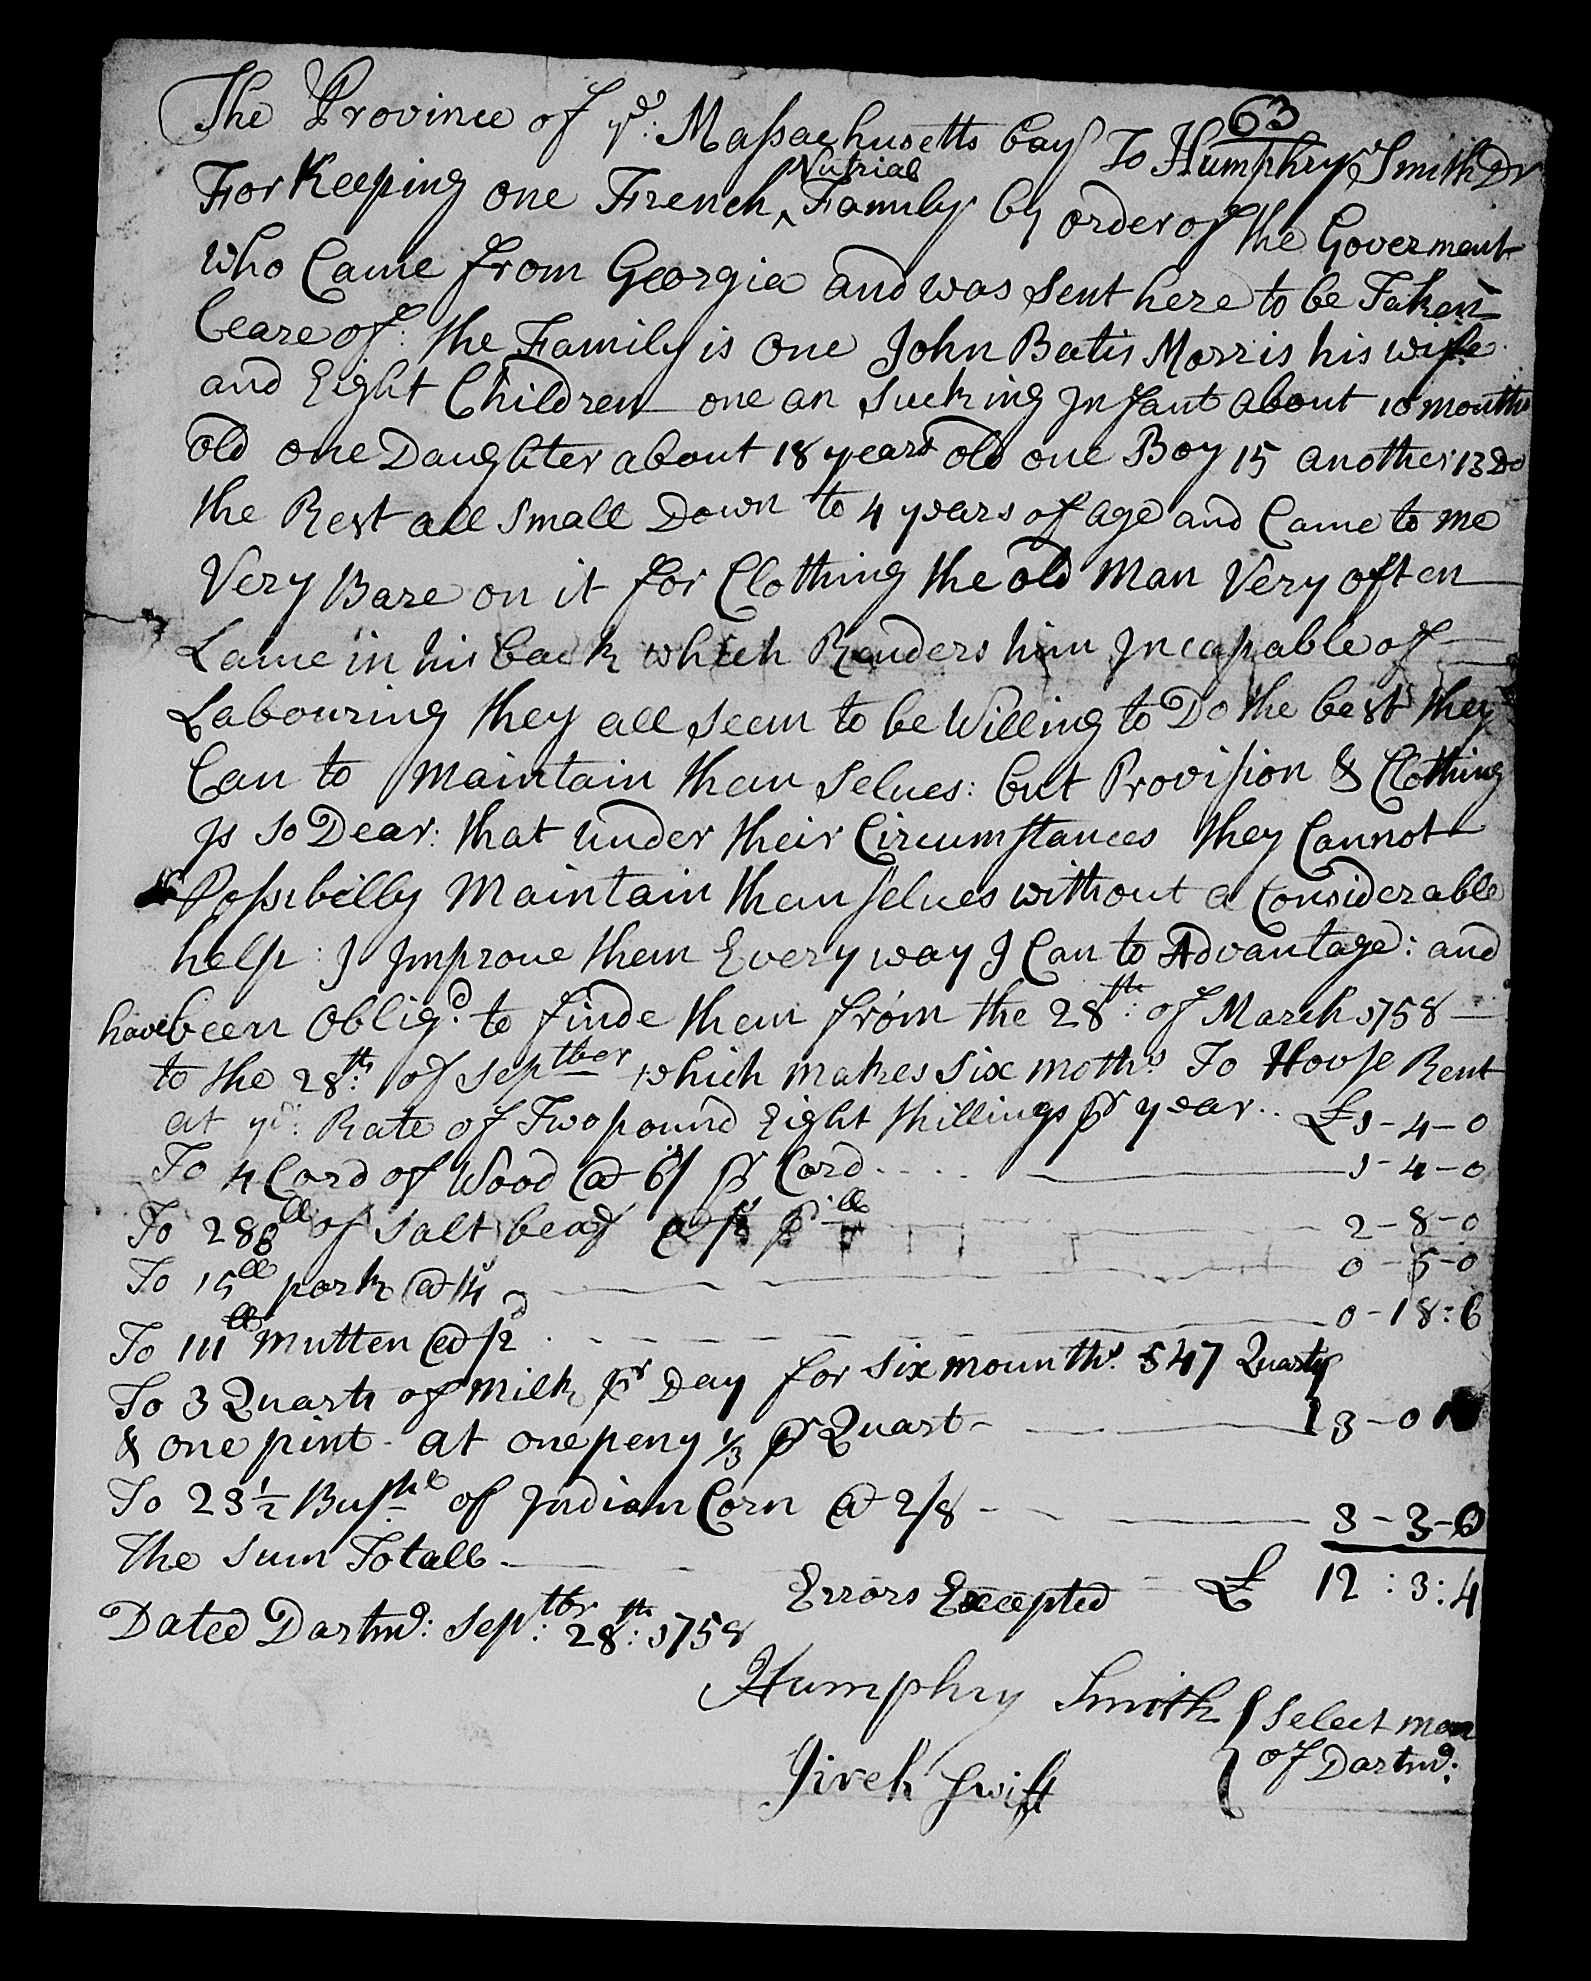 63
The Province of ye: Massachusetts bay To Humphry Smith Dr
For Keeping one French ^ Nutrial Family by order of the Goverment
who Came from Georgia and was Sent here to be Taken
Ceare of: the Family is one John Batis Morris his wife
and Eight Children one an Sucking Infant about 10 months
old one Daughter about 18 years old one Boy 15 another 13 Do
the Rest all Small Down to 4 years of age and Came to me
Very Bare on it for Clothing the old man Very often
Lame in his back which Renders him Incapable of
Labouring they all seem to be Willing to Do the best they
Can to Maintain them Selves: but Provision & Clothing
Is so Dear: that under their Circumstances they Cannot
Possibelly Maintain themselves without a Considerable
help: I Improve them Every way I Can to Advantage: and
have been obligd. to finde them from the 28th: of March 1758
to the 28th: of Septber which makes Six moths To House Rent
at ye: Rate of Two pound Eight Shillings pr year.. £1-4-0
To 4 Cord of Wood @ 6/ pr Cord.... 1-4-0
To 288ll of Salt beaf @ /2 pr ll 2-8-0
To 15ll pork @ /4 0-5-0
To 111ll Mutten @ /2 0-18:6
To 3 Quarts of milk pr Day for Six mounths 547 Quarts
& one pint - at onepeny 1/3 pr Quart- 3-0
To 23 1/2 Bushl of Indian Corn @ 2/8 - 3-3-0
The Sum Totall - £ 12:3:4
Errors Excepted
Dated Dartmo: Septbr: 28th: 1758
Humphry Smith } Select men
Jireh Swift } of Dartmo: